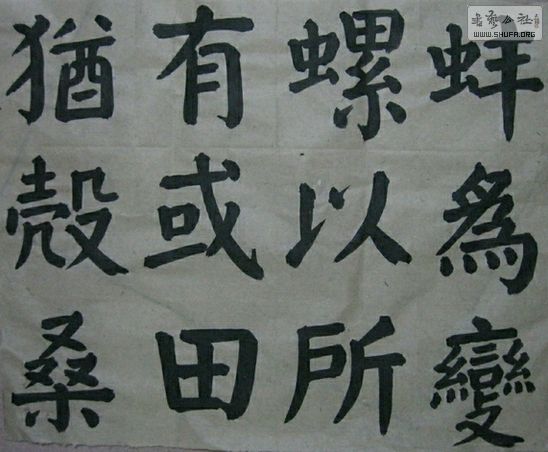 猶有螺蚌
殼或以為
桑田所變
書藝公社
WWW.SHUFA.ORG